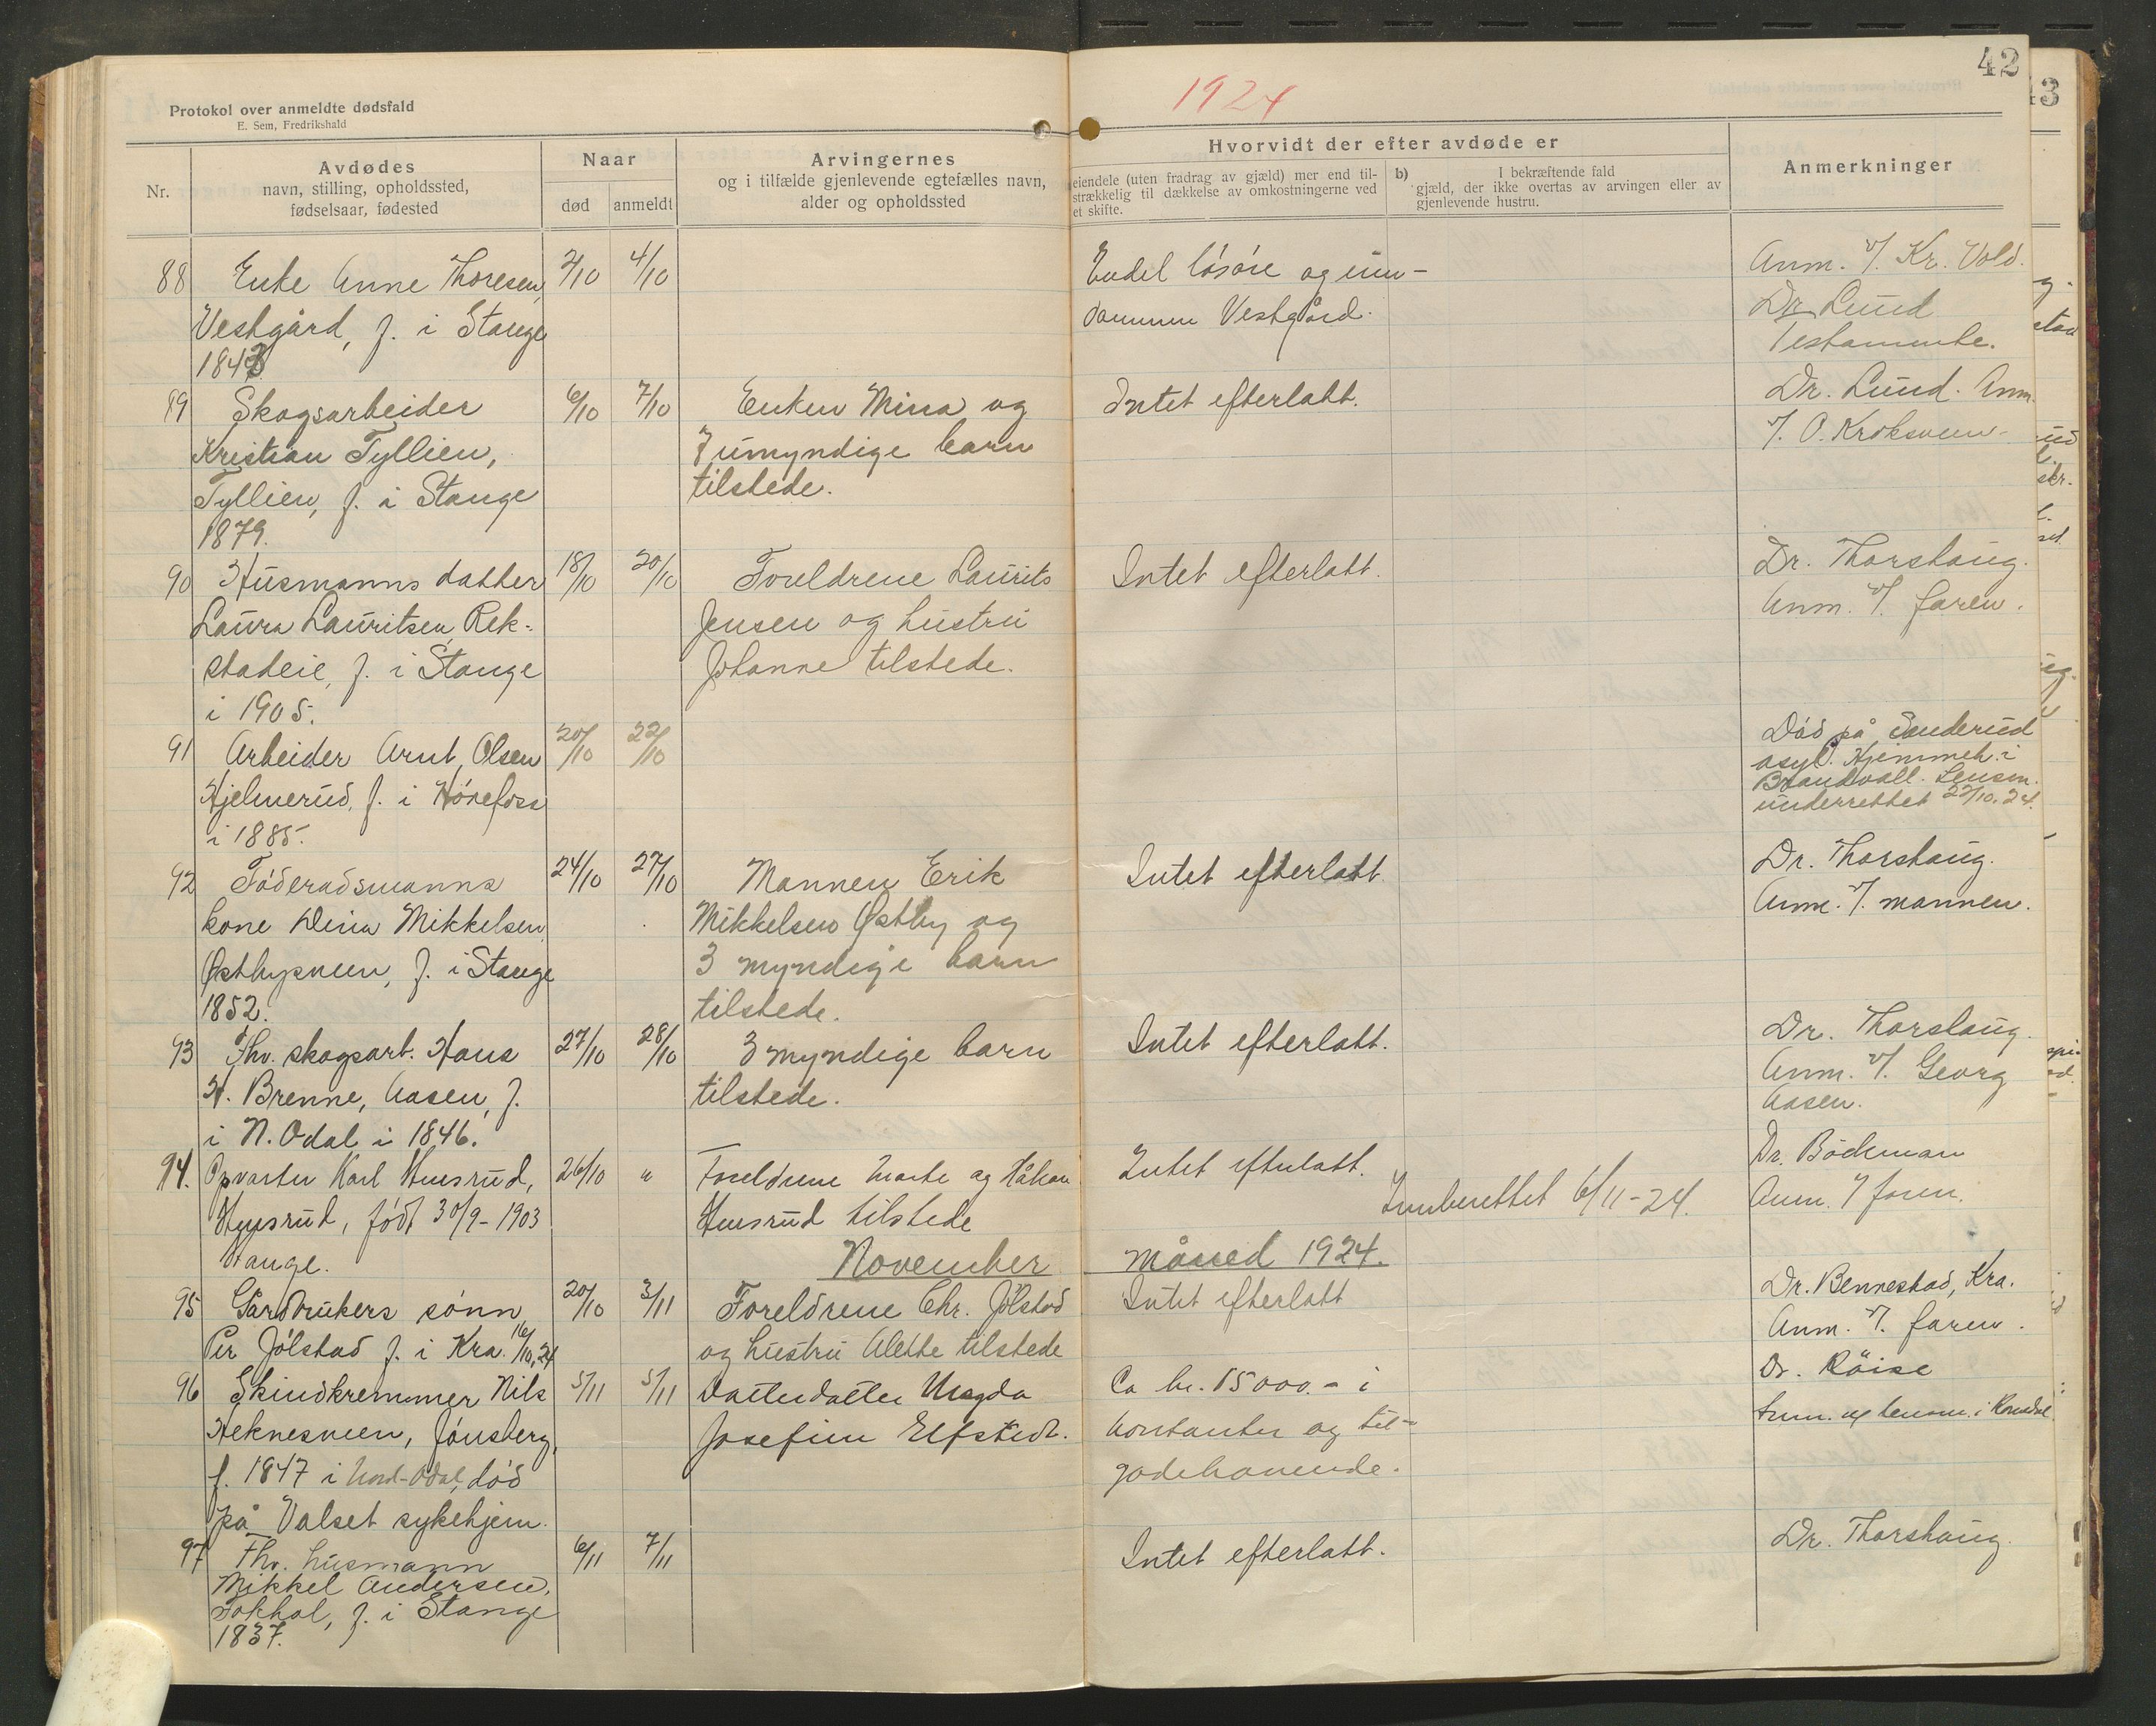 42
43
1924
Protokol over anmeldte dødsfald
E. Sem, Fredrikshald
Nr.
Avdødes
navn, stilling, opholdssted,
fødselsaar, fødested
Naar
død
anmeldt
Arvingernes
og i tilfælde gjenlevende egtefælles navn,
alder og opholdssted
Hvorvidt der efter avdøde er
eiendele (uten fradrag av gjæld) mer end til-
strækkelig til dækkelse av omkostningerne ved
et skifte.
b) I bekræftende fald
gjæld, der ikke overtas av arvingen eller av
gjenlevende hustru.
Anmerkninger
88 Enke Anne Thoresen, 2/10 4/10 Endel løsøre og eien- Anm. v/. Kr. Vold.
Vestgård, f. i Stange dommen Vestgård. Dr. Lund
1843 Testamente.
89 Skogsarbeider 6/10 7/10 Enken Mina og Intet efterlatt. Dr. Lund. Anm.
Kristian Tyllien, 7 umyndige barn v/. O. Kroksveen.
Tyllien, f. i Stange tilstede.
1879.
90 Husmanns datter 18/10 20/10 Foreldrene Laurits Intet efterlatt. Dr. Thorshaug.
Laura Lauritsen, Rek- Jensen og hustru Anm. v/. faren.
stadeie, f. i Stange Johanne tilstede.
i 1905.
91 Arbeider Arnt Olsen 20/10 22/10 Død på Sanderud
Hjelmerud, f. i Hønefoss asyl. Hjemmeh. i
i 1885. Brandvall. Lensm.
underrettet 22/10.24.
92 Føderadsmanns 24/10 27/10 Mannen Erik Intet efterlatt. Dr. Thorshaug.
kone Dina Mikkelsen, Mikkelsen Østby og Anm. v/. mannen.
Østbysveen, f. i Stange 3 myndige barn
1852. tilstede.
93 Fhv. skogsarb. Hans 27/10 28/10 3 myndige barn Intet efterlatt. Dr. Thorshaug.
H. Brenne, Aasen, f. tilstede. Anm. v/. Georg
i N. Odal i 1846. Aasen.
94. Opvarter Karl Husrud, 26/10 " Foreldrene Marte og Håkon Intet efterlatt. Dr. Bødeman
Husrud, født 30/9-1903 Husrud tilstede Innberettet 6/11-24. Anm. v/ faren.
Stange.
November måned 1924.
95 Gårdbrukers sønn 20/10 3/11 Foreldrene Chr. Jølstad Intet efterlatt Dr. Bennestad, Kra.
Per Jølstad f. i Kra. 16/10,24 og hustru Alette tilstede Anm. v/. faren.
96 Skindkremmer Nils 5/11 5/11 Datterdatter Magda Ca kr. 15000.- i Dr. Røise
Heknesveen, Jønsberg, Josefine Elfstedt. kontanter og til- lensm. i Romedal
f. 1847 i Nord-Odal, død godehavende.
på Valset sykehjem.
97 Fhv. husmann 6/11 7/11 Intet efterlatt. Dr. Thorshaug.
Mikkel Andersen,
Fokhol, f. i Stange
1837.